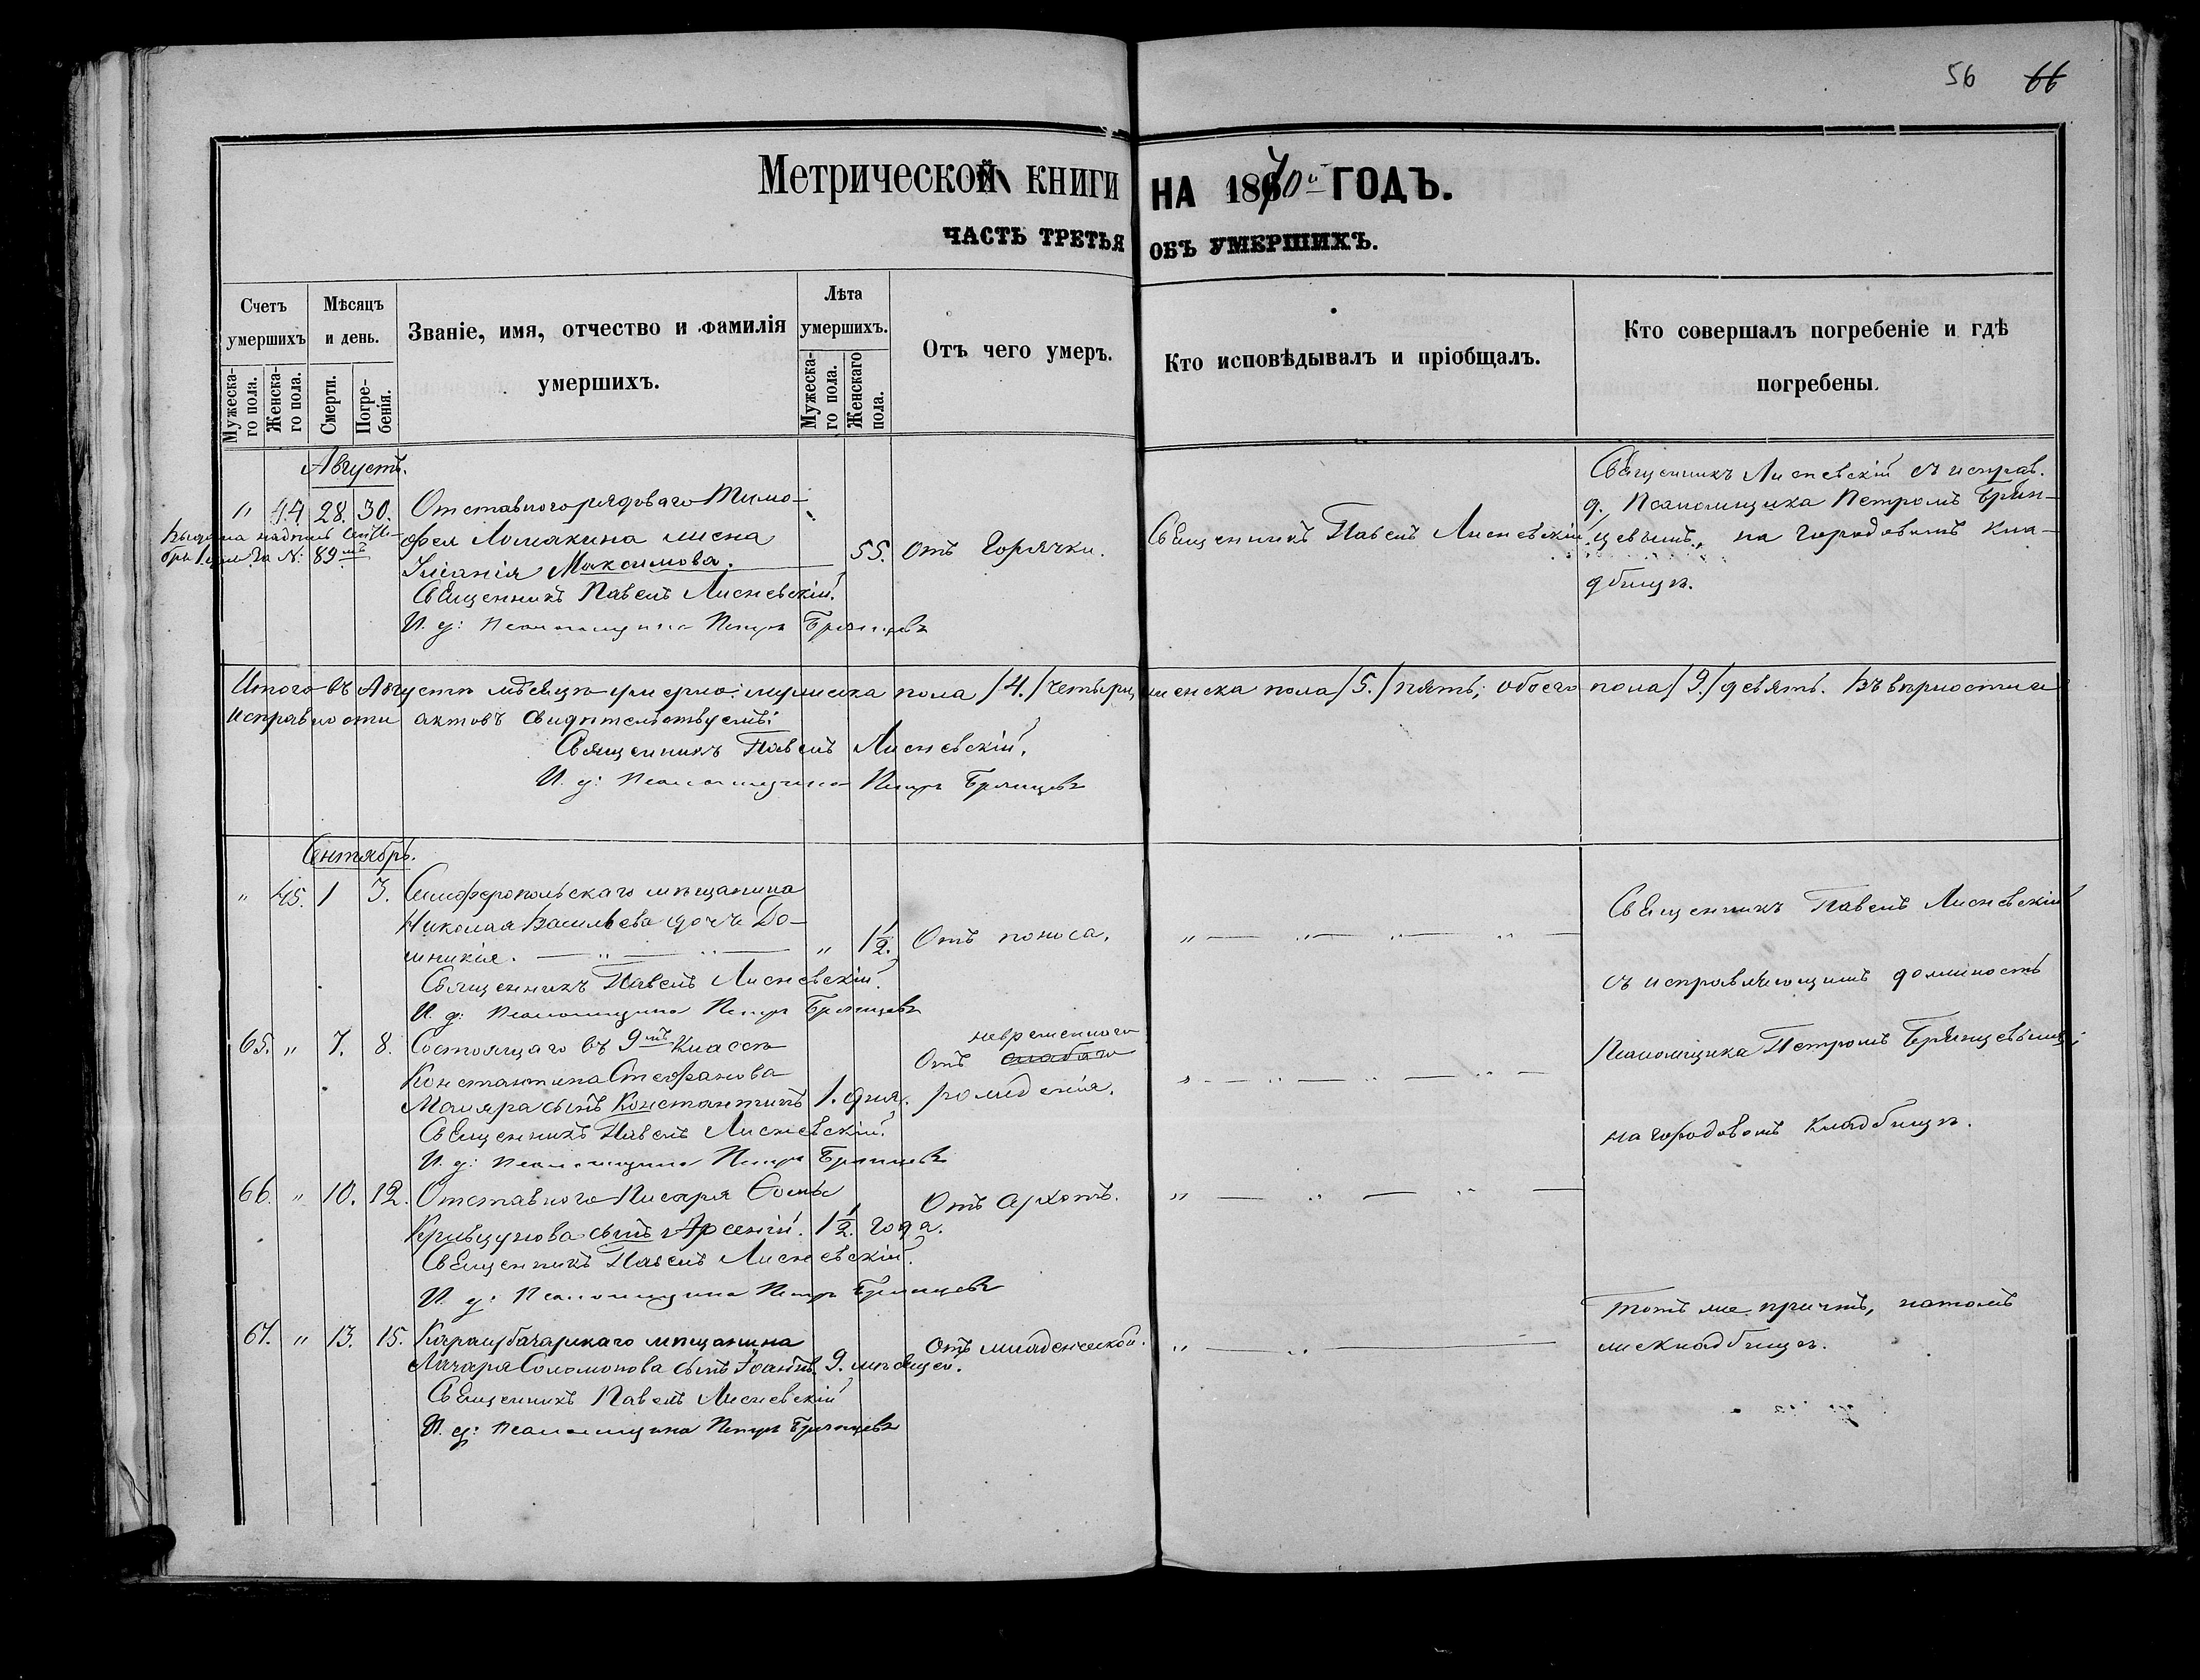 56 66
Метрической книги НА 1870й ГОДЪ.
ЧАСТЬ ТРЕТЬЯ ОБЪ УМЕРШИХЪ.
Счетъ умершихъ
Мѣсяцъ и день.
Званіе, имя, отчество и фамилія умершихъ.
Лѣта умершихъ.
Отъ чего умеръ.
Кто исповѣдывалъ и пріобщалъ.
Кто совершалъ погребеніе и гдѣ погребены.
Мужеска-го пола.
Женска-го пола.
Смерти.
Погре-бенія.
Мужеска-го пола.
Женскаго пола.
Августъ.
" 44. 28. 30. Отставнаго рядоваго Тимо-
фея Ломакина жена
Максимова. 55. Отъ Горячки.
Священникъ Павелъ Лисневскій.
И. д: Псаломщика Петръ Брянцевъ
Выдана надпись Сентя-
бря 1 дня За №: 89мъ
Священникъ Павелъ Лисневскій
Священникъ Лисневскій съ исправ.
д. Псаломщика Петромъ Брян-
цевымъ, на городовомъ кла-
дбищѣ.
Итого въ Августѣ мѣсяцѣ умерло: мужеска пола /4./ четыре, женска пола /5./ пять; обоего пола /9./ девять. Въ вѣрности и
исправности актовъ свидѣтельствуемъ:
Священникъ Павелъ Лисневскій.
И. д: Псаломщика Петръ Брянцевъ
Сентябрь.
" 45. 1 3. Симферопольскаго мѣщанина
Николая Васильева дочь До-
мникія. " 1½. Отъ поноса.
Священникъ Павелъ Лисневскій.
И. д: Псаломщика Петръ Брянцевъ
Священникъ Павелъ Лисневскій
съ исправляющимъ должность
Псаломщика Петромъ Брянцевымъ;
на городовомъ кладбищѣ.
65. " 7. 8. Состоящаго въ 9мъ Классѣ
Константина Стефанова
Маляра сынъ Константинъ 1. дня.
невременнаго
Отъ слабаго
рожденія.
Священникъ Павелъ Лисневскій.
И. д: Псаломщика Петръ Брянцевъ
66. " 10. 12. Отставнаго Писаря
Кривцунова сынъ Арсеній. 1½. года.
Отъ
Священникъ Павелъ Лисневскій.
И. д: Псаломщика Петръ Брянцевъ
67. " 13. 15. Карасубазарскаго мѣщанина
Соломонова сынъ Іоаннъ. 9. мѣсяцей.
Отъ младенческой.
Священникъ Павелъ Лисневскій
И. д: Псаломщика Петръ Брянцевъ
Тотъ же причтъ, на томъ
же кладбищѣ.